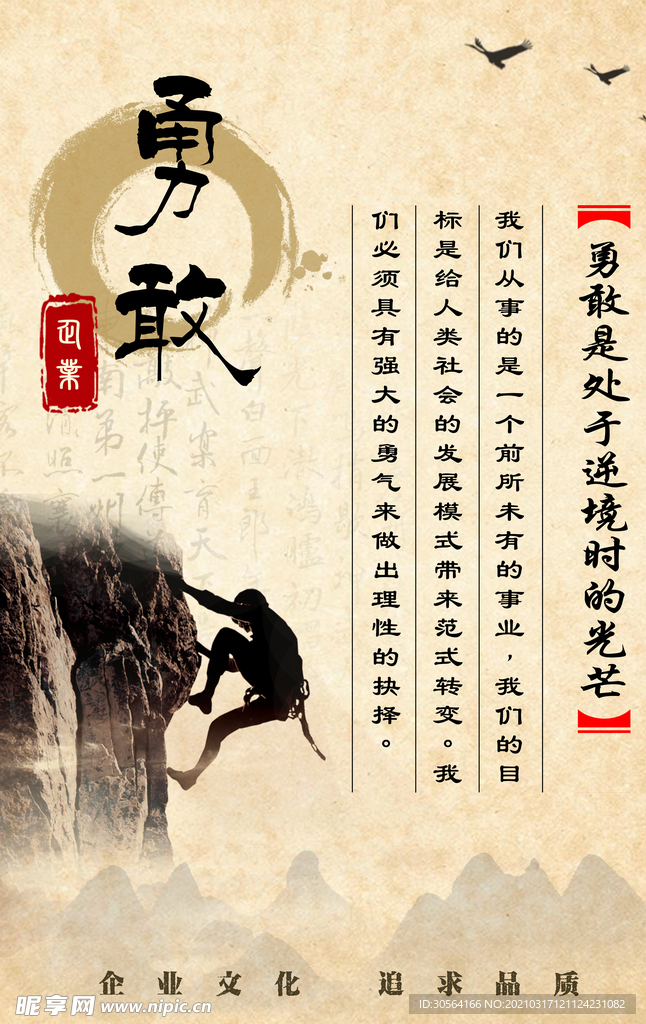 勇敢
企业
【勇敢是处于逆境时的光芒】
我们从事的是一个前所未有的事业，我们的目
标是给人类社会的发展模式带来范式转变。我
们必须具有强大的勇气来做出理性的抉择。
企业文化 追求品质
昵享网 www.nipic.cn
ID:30564166 NO:20210317121124231082